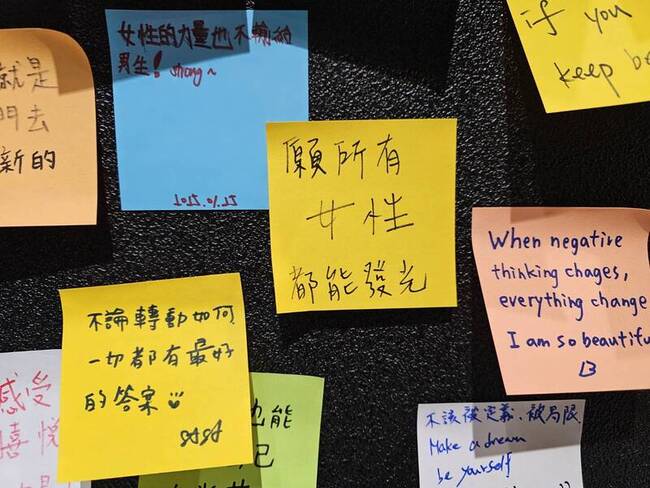 就是
門去
新的
女性的力量也不輸給
男生! strong~
if you
keep be
願所有
女性
都能發光
When negative
thinking chages,
everything change
I am so beautiful
不論轉動如何
一切都有最好
的答案
感受
喜悅
也能
己
不該被定義、被局限
Make a dream
be yourself